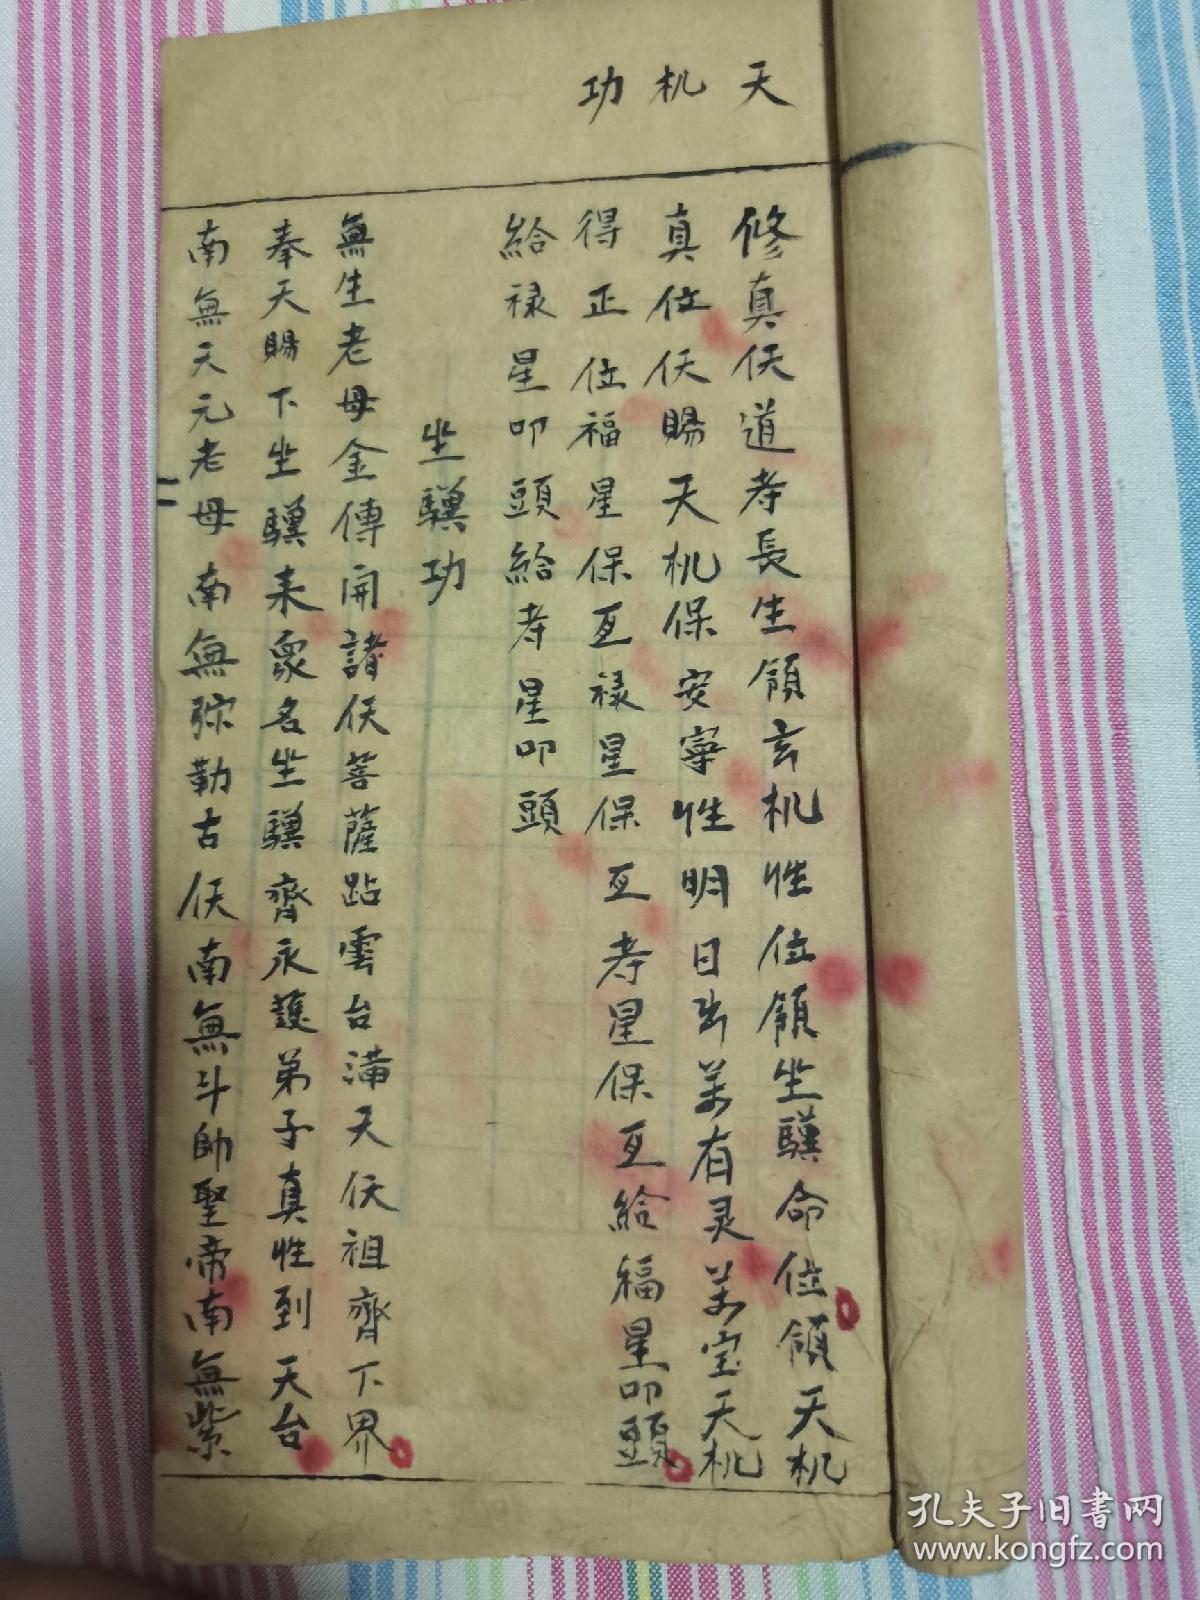 天机功
修真仸道寿長生領玄机性位領坐驥命位領天机
真位仸賜天机保安寧性明日出某有灵某宝天机
得正位福星保互禄星保互寿星保互給福星叩頭
給禄星叩頭給寿星叩頭
坐驥功
無生老母金傳開諸仸菩薩跕雲台滿天仸祖齊下界
奉天賜下坐驥来衆名坐驥齊永護弟子真性到天台
南無天元老母南無弥勒古仸南無斗帥聖帝南無紫
孔夫子旧书网
www.kongfz.com